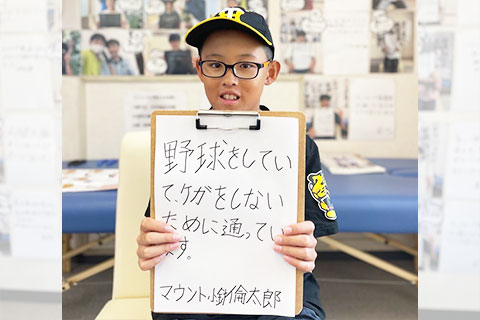 野球をしてい
て、ケガをしない
ために通ってい
ます。
マウント小鉄倫太郎